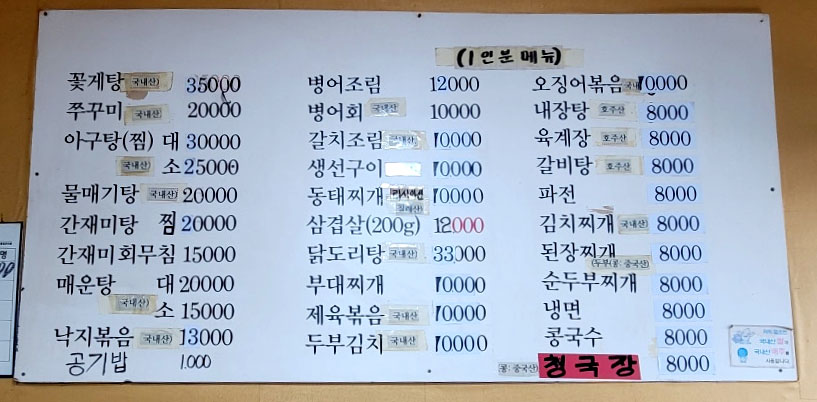 (1인분 메뉴)
꽃게탕 국내산) 35000
쭈꾸미 국내산) 20000
아구탕(찜) 대 30000
국내산) 소 25000
물매기탕 국내산) 20000
간재미탕 찜 20000
간재미회무침 15000
매운탕 대 20000
국내산) 소 15000
낙지볶음 국내산) 13000
공기밥 1.000
병어조림 12000
병어회 국내산 10000
갈치조림 국내산) 10000
생선구이 10000
동태찌개 러시아산 10000
삼겹살(200g) 칠레산) 12000
닭도리탕 국내산) 33000
부대찌개 10000
제육볶음 국내산) 10000
두부김치 국내산) 10000
오징어볶음 국내 10000
내장탕 호주산) 8000
육계장 호주산) 8000
갈비탕 호주산) 8000
파전 8000
김치찌개 국내산) 8000
된장찌개 8000
(두부(콩: 중국산)
순두부찌개 8000
냉면 8000
콩국수 8000
콩: 중국산) 청국장 8000
국내산 쌀
국내산